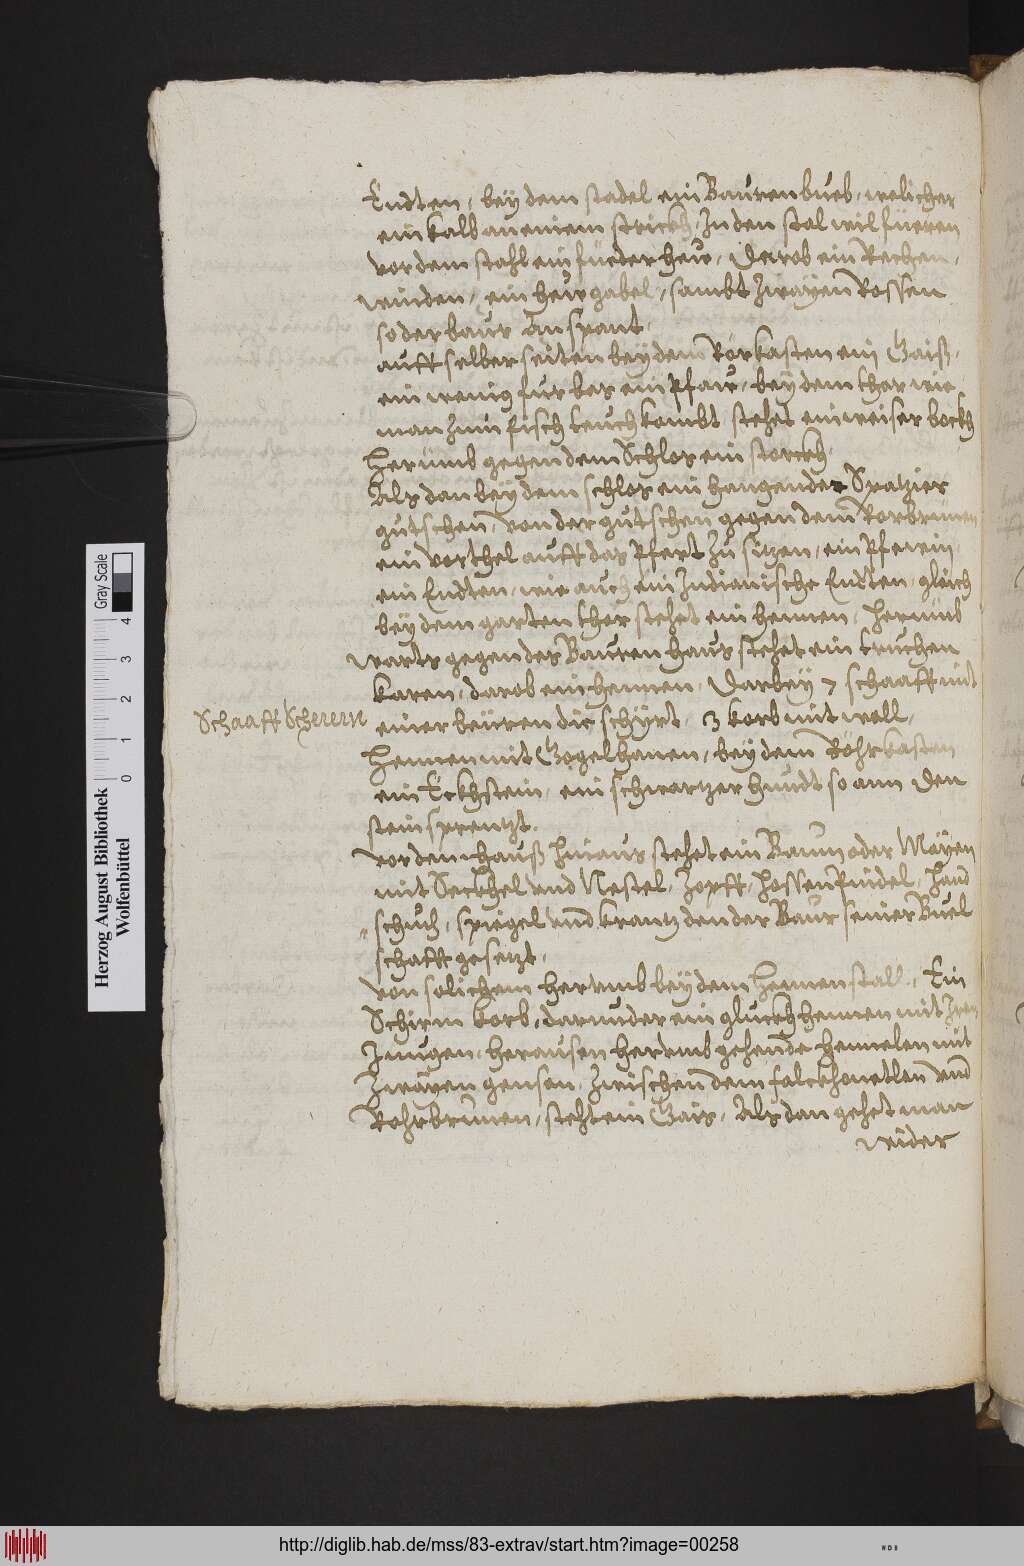 Endten, bey dem stadel ein Baurenbueb, welicher
ein kalb an einem strickh, In den stal wil füeren
vor dem stahl ein fueder hew, Darob ein Rechen,
winden, ein hewgabel, sambt Zwayen Rossen
so der baur an spant,
auff selber seiten bey dem Rorkasten ein Gaiß,
ein wenig furbas ein Pfaw, bey dem thor wie
man zum fisch teuch kombt stehet ein weiser bockh
herumb gegen dem Schlos ein storckh,
Als dan bey dem schlos ein hangender Spatzier
gutschen, von der gutschen gegen dem Rorbrunen
ein vorthel auff das Pfert zu sitzen, ein Pfewin,
ein Endten, wie auch ein Indianische Endten, gleich
bey dem garten thor stehet ein hennen, herumb
warts gegen des Bauren haus stehet ein truchen
karen, darob ein hennen, Darbey 7 schaaff mit
Schaaff Scherern
einer beuren die schyrt, 3 korb mit woll,
hennen mit Gogelhanen, bey dem Röhrkasten
ein Eckhstein, ein schwartzer hundt so ann den
stein sprentzt.
vor dem hauß hinaus stehet ein Baum oder Mayen
mit Seckhel vnd Nestel, Zopff, hossen Pindel, hand
schuh, spiegel vnd krantz den der Baur seiner Buel
schafft gesetzt,
von solichem hervmb bey dem hennenstall, Ein
Schirm korb, darunder ein gluckhhennen mit Iren
Jungen, heraussen hervmb gehende hennelen mit
Zwayen gensen, Zwischen dem falckhonetlen vnd
Rohrbrunen, steht ein Gais, Als dan gehet man
wider
Herzog August Bibliothek
Wolfenbüttel
Gray Scale
0 1 2 3 4
http://diglib.hab.de/mss/83-extrav/start.htm?image=00258